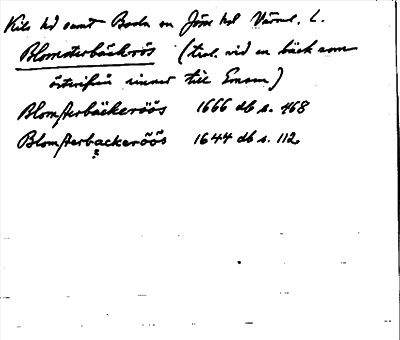 Kils hd samt Boda sn Jösse hd Värml. L.
Blomsterbäckrös (trol. vid en bäck som
österifrån rinner till Emsen)
Blomsterbäckeröös 1666 db s. 468
Blomsterbackeröös 1644 db s. 112
?